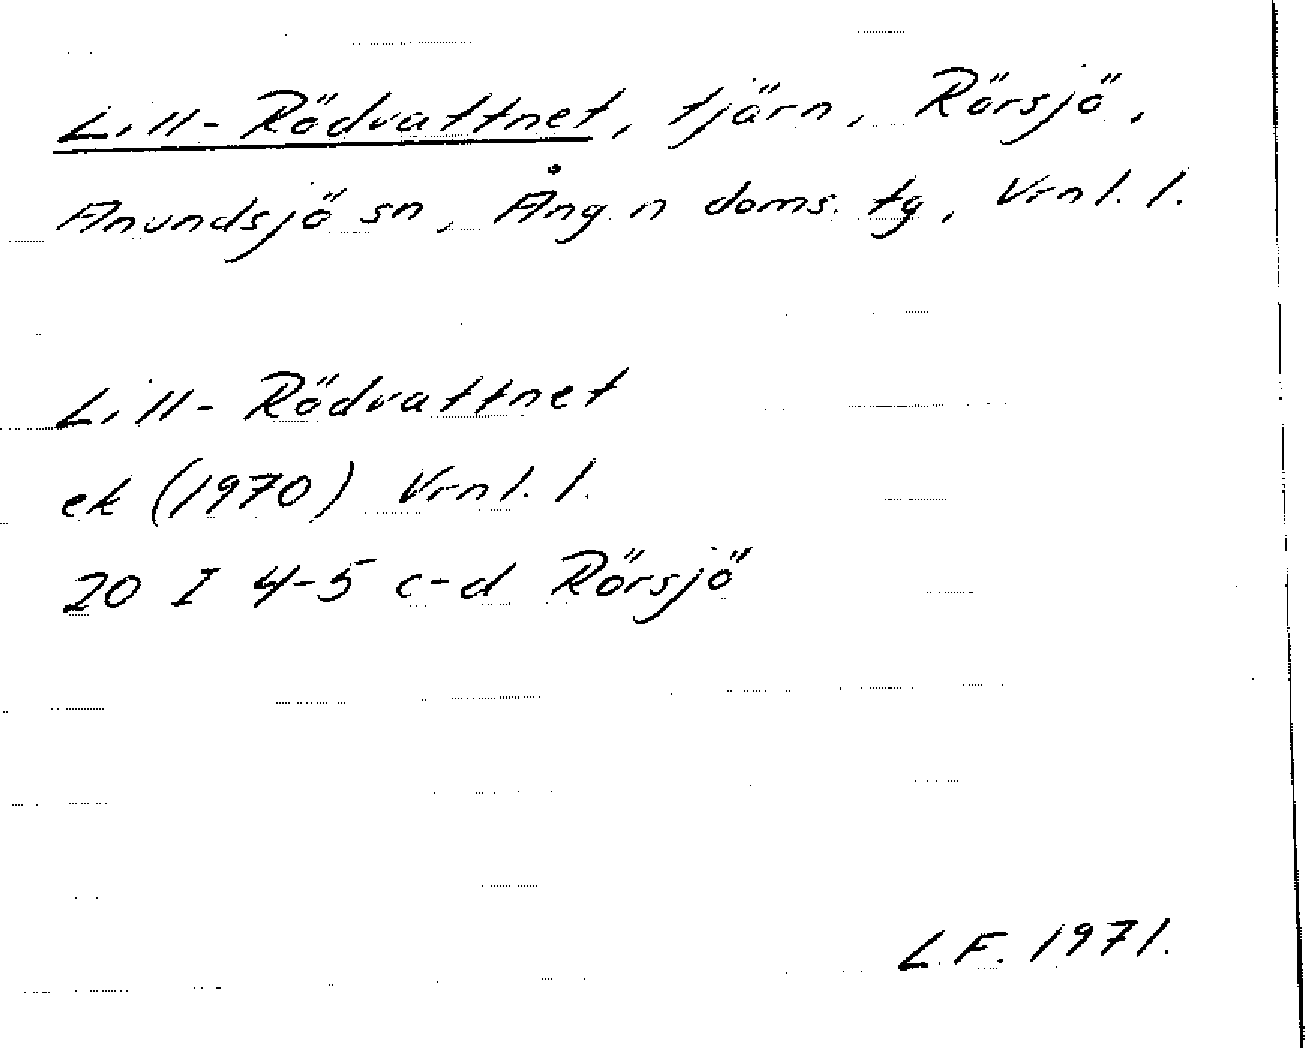 Lill-Rödvattnet, tjärn, Rörsjö,
Anundsjö sn, Ång. n doms. tg, Vrnl. l.
Lill-Rödvattnet
ek (1970) Vrnl. l.
20 I 4-5 c-d Rörsjö
L.F. 1971.